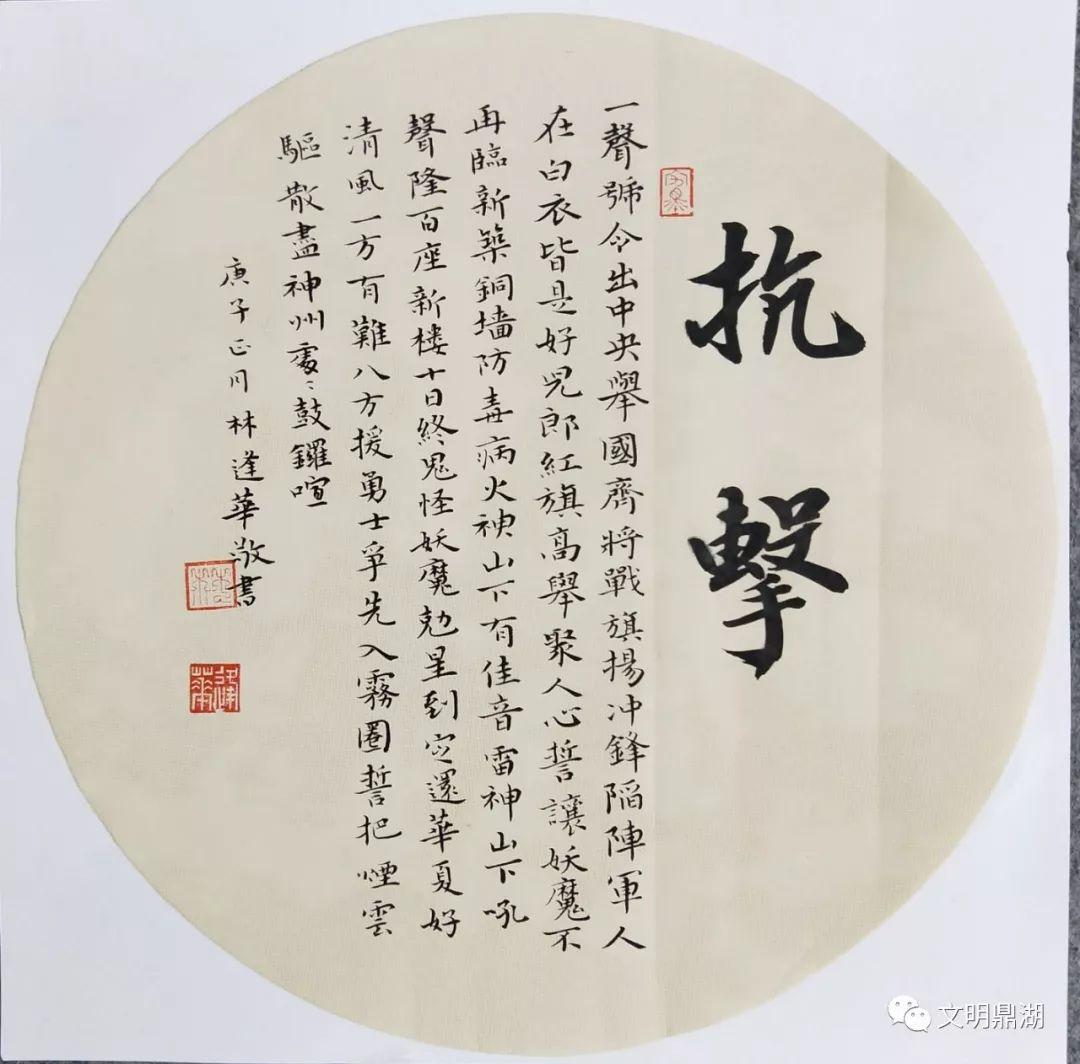 抗擊
一聲號令出中央舉國齊將戰旗揚冲鋒陷陣軍人
在白衣皆是好兒郎紅旗高舉聚人心誓讓妖魔不
再臨新築銅墙防毒病火神山下有佳音雷神山下吼
聲隆百座新楼十日終鬼怪妖魔尅星到定還華夏好
清風一方有難八方援勇士爭先入霧圈誓把煙雲
驅散盡神州處〻鼓鑼喧
庚子正月林逢華敬書
文明鼎湖